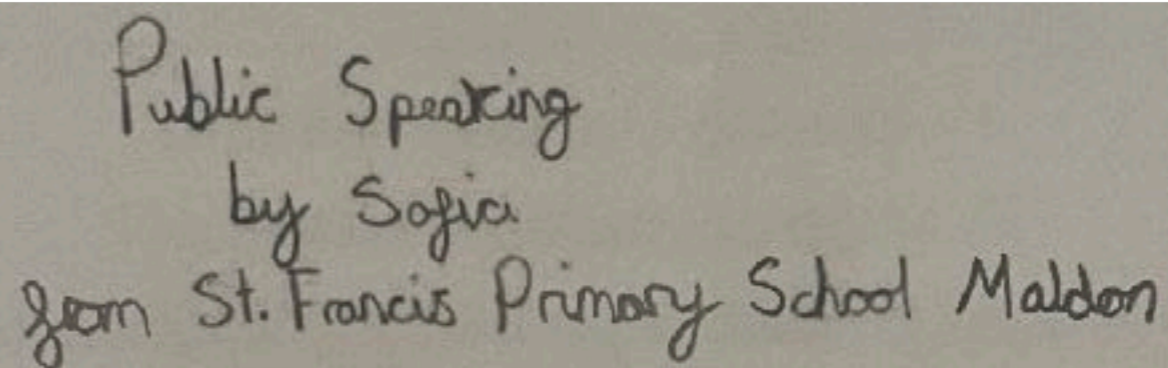 Public Speaking
by Sofia
from St. Francis Primary School Maldon